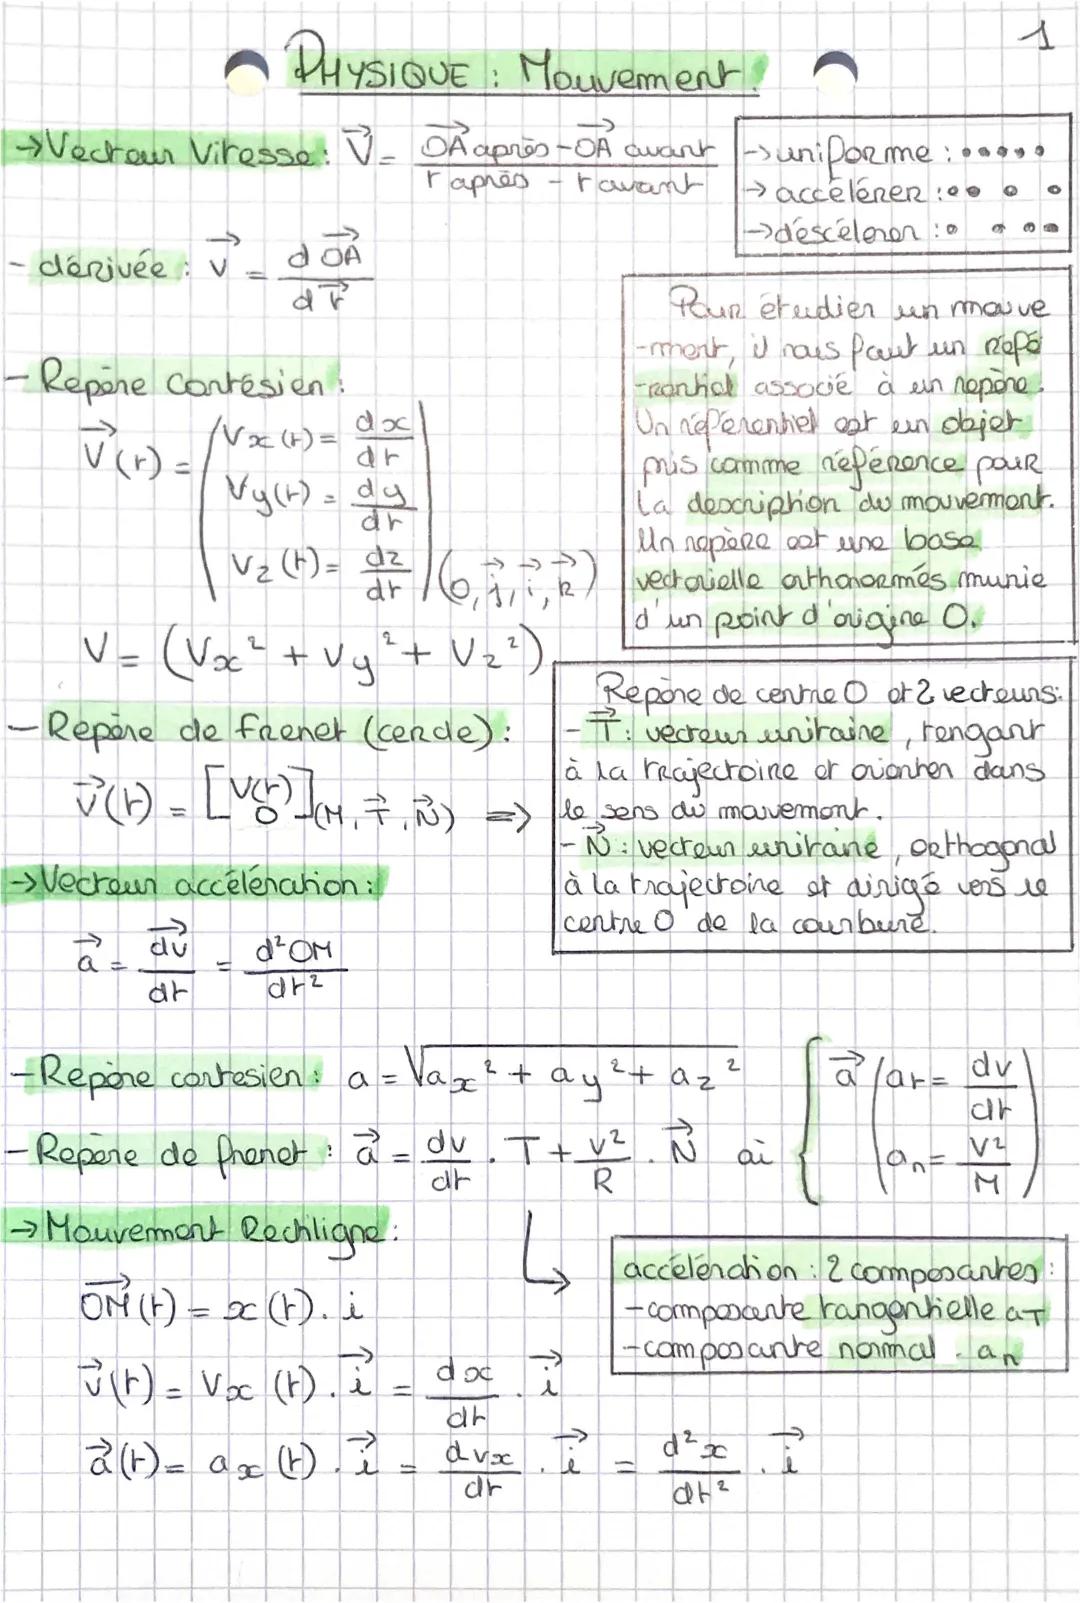 1
PHYSIQUE : Mouvement.
→Vecteur Vitesse : V⃗ = (OA⃗ après - OA⃗ avant) / (t après - t avant)
→uniforme : •••••
→accélérer : •• • •
→déscélerer : • • ••
- dérivée : v⃗ = d OA⃗ / d t⃗
Pour étudier un mouve
-ment, il nous faut un réfé
-rentiel associé à un repère.
Un référentiel est un objet
pris comme référence pour
la description du mouvement.
Un repère est une base
vectorielle orthonormés munie
d'un point d'origine O.
- Repère Cartésien :
V⃗(t) = ( Vx(t) = dx/dt
Vy(t) = dy/dt
Vz(t) = dz/dt ) (O, j⃗, i⃗, k⃗)
V = (Vx² + Vy² + Vz²)
- Repère de frenet (cercle) :
v⃗(t) = [V(t) 0] (M, T⃗, N⃗) ⇒
Repère de centre O et 2 vecteurs :
- T⃗ : vecteur unitaire, tengant
à la trajectoire et orienter dans
le sens du mouvement.
- N⃗ : vecteur unitaire, orthogonal
à la trajectoire et dirigé vers le
centre O de la courbure.
→Vecteur accélération :
a⃗ = dv⃗/dt = d²OM/dt²
- Repère cartesien : a = √(ax² + ay² + az²)
- Repère de frenet : a⃗ = dv/dt . T + v²/R . N⃗ où { a⃗ ( at = dv/dt
an = v²/M )
→Mouvement Rectiligne :
accélération : 2 composantes :
- composante tangentielle aT
- composante normal . an
OM⃗(t) = x(t). i
v⃗(t) = Vx (t). i⃗ = dx/dt . i⃗
a⃗(t) = ax (t) . i⃗ = dvx/dt . i⃗ = d²x/dt² . i⃗